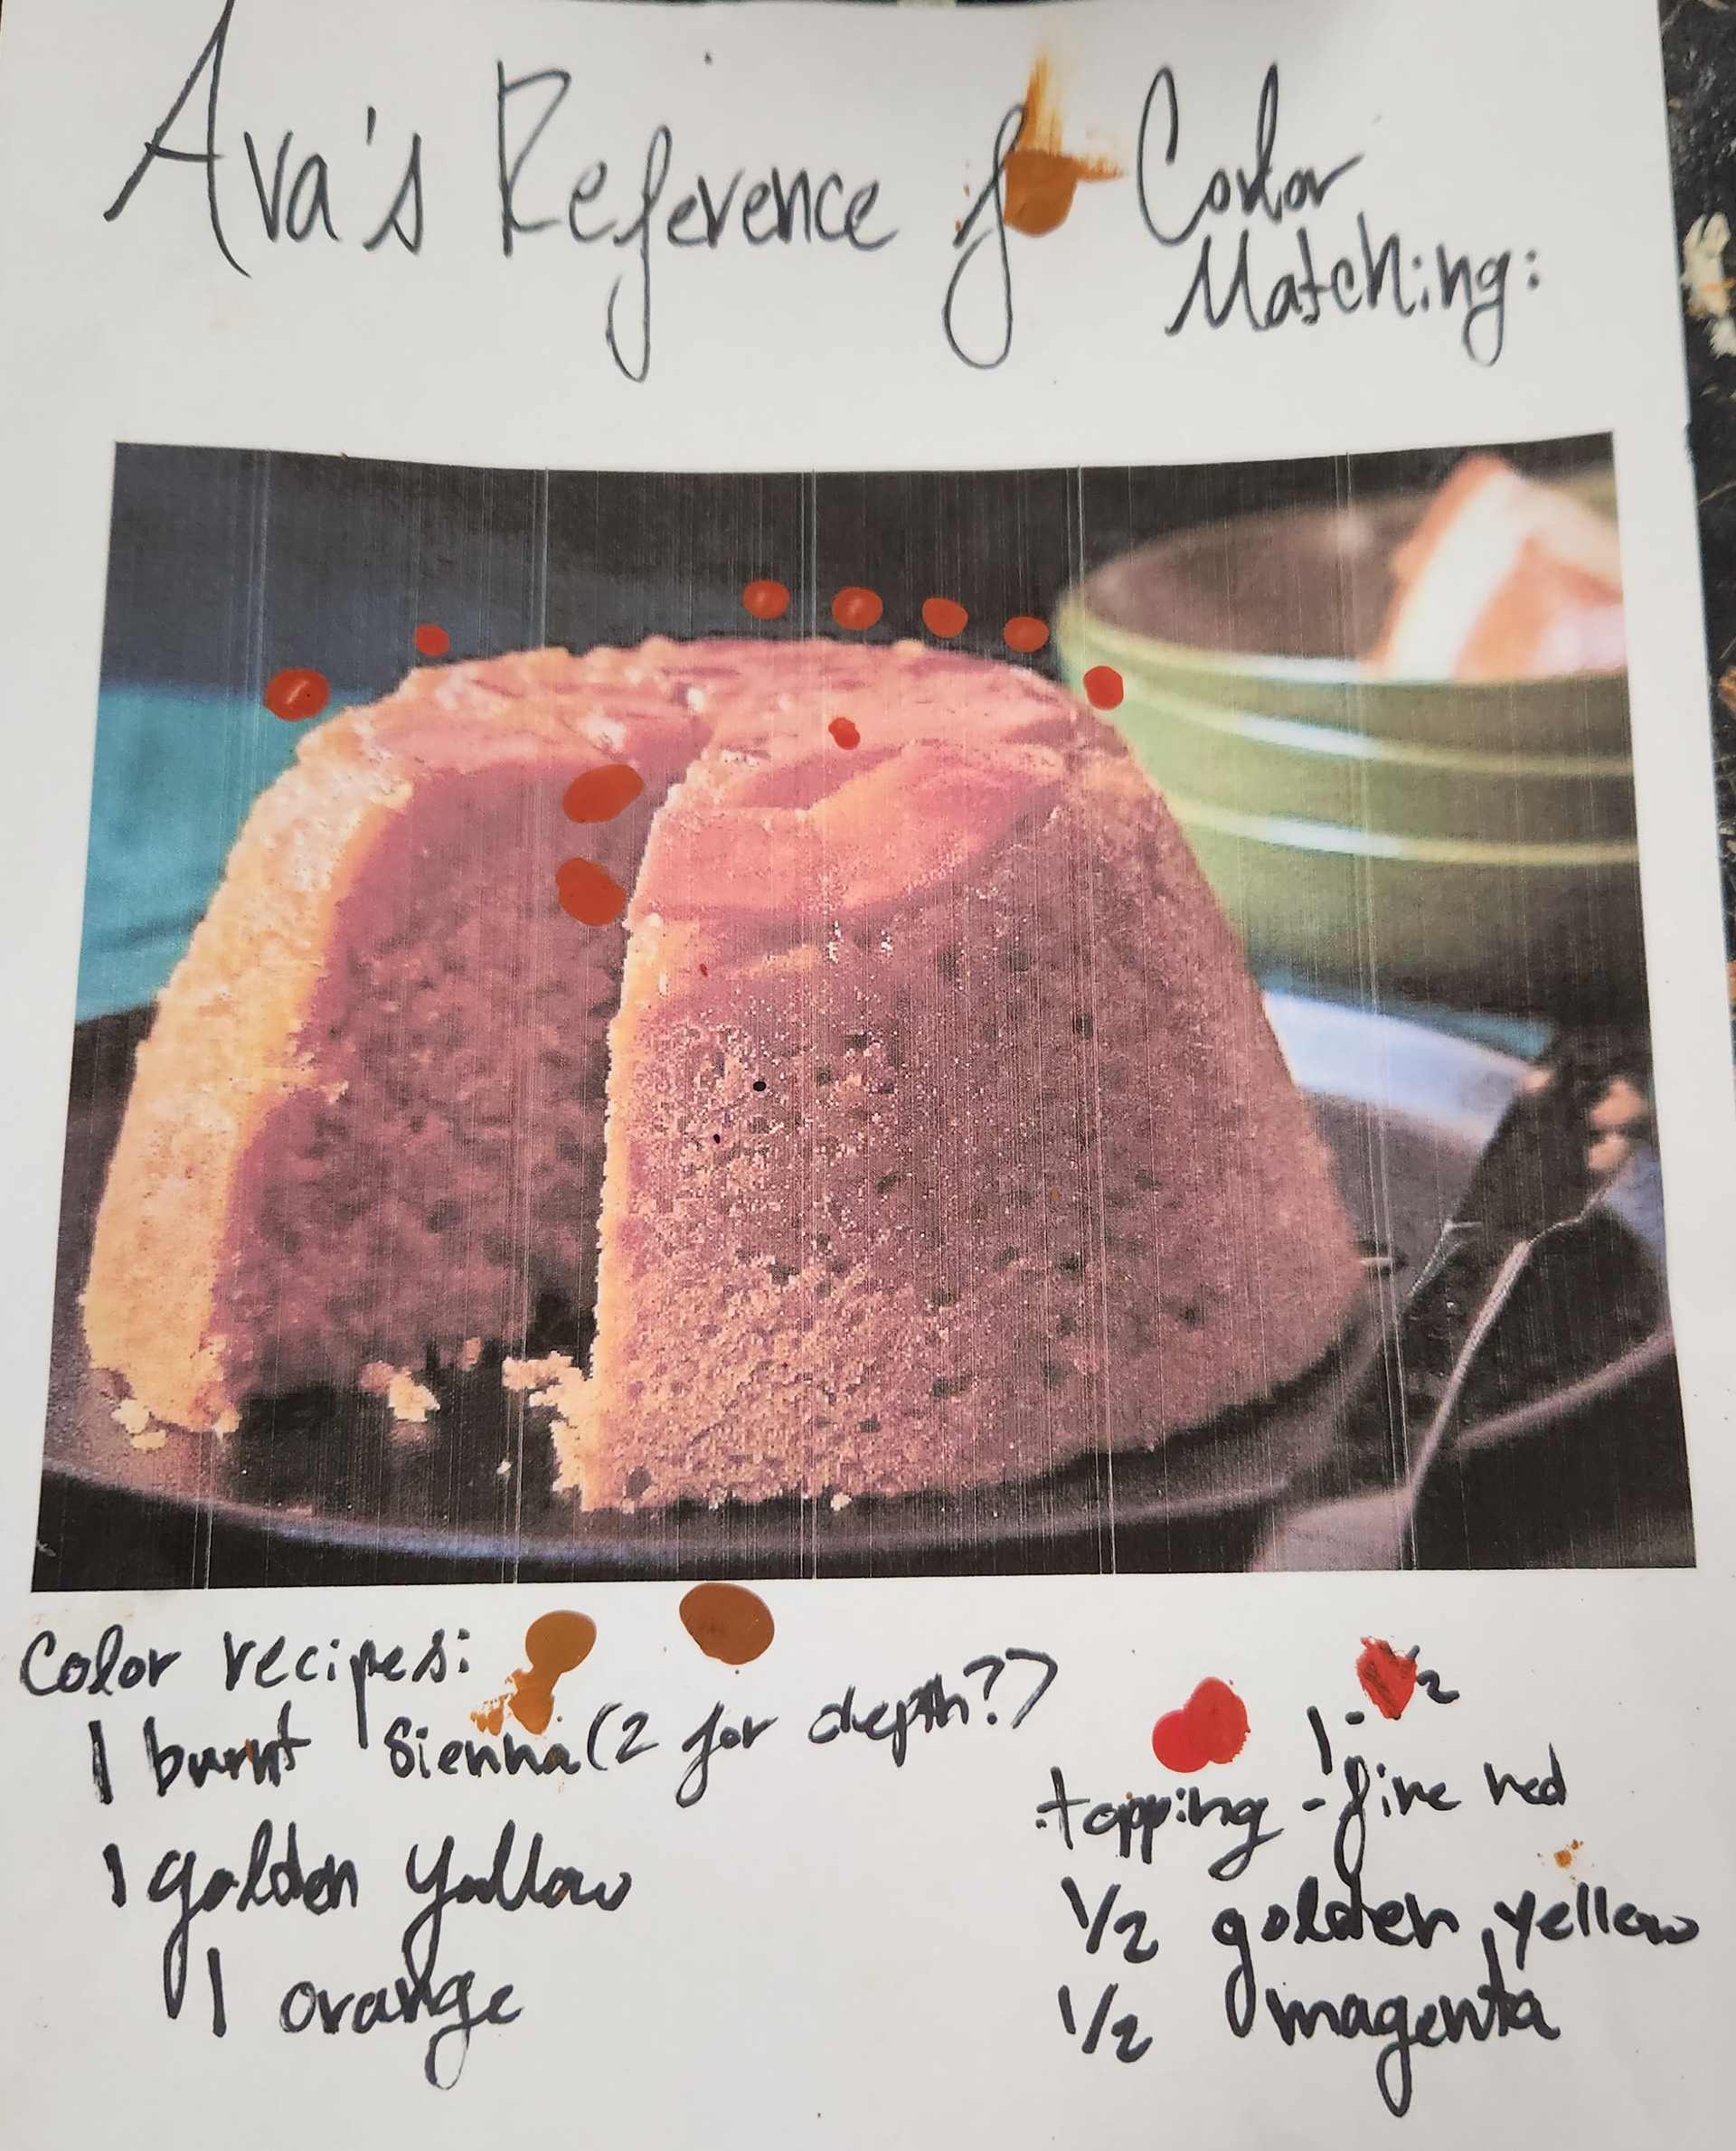 Ava's Reference for Color
Matching:
Color recipes:
1 burnt sienna (2 for depth?)
1 golden yellow
1 orange
1 - 2
topping - fire red
1/2 golden yellow
1/2 magenta